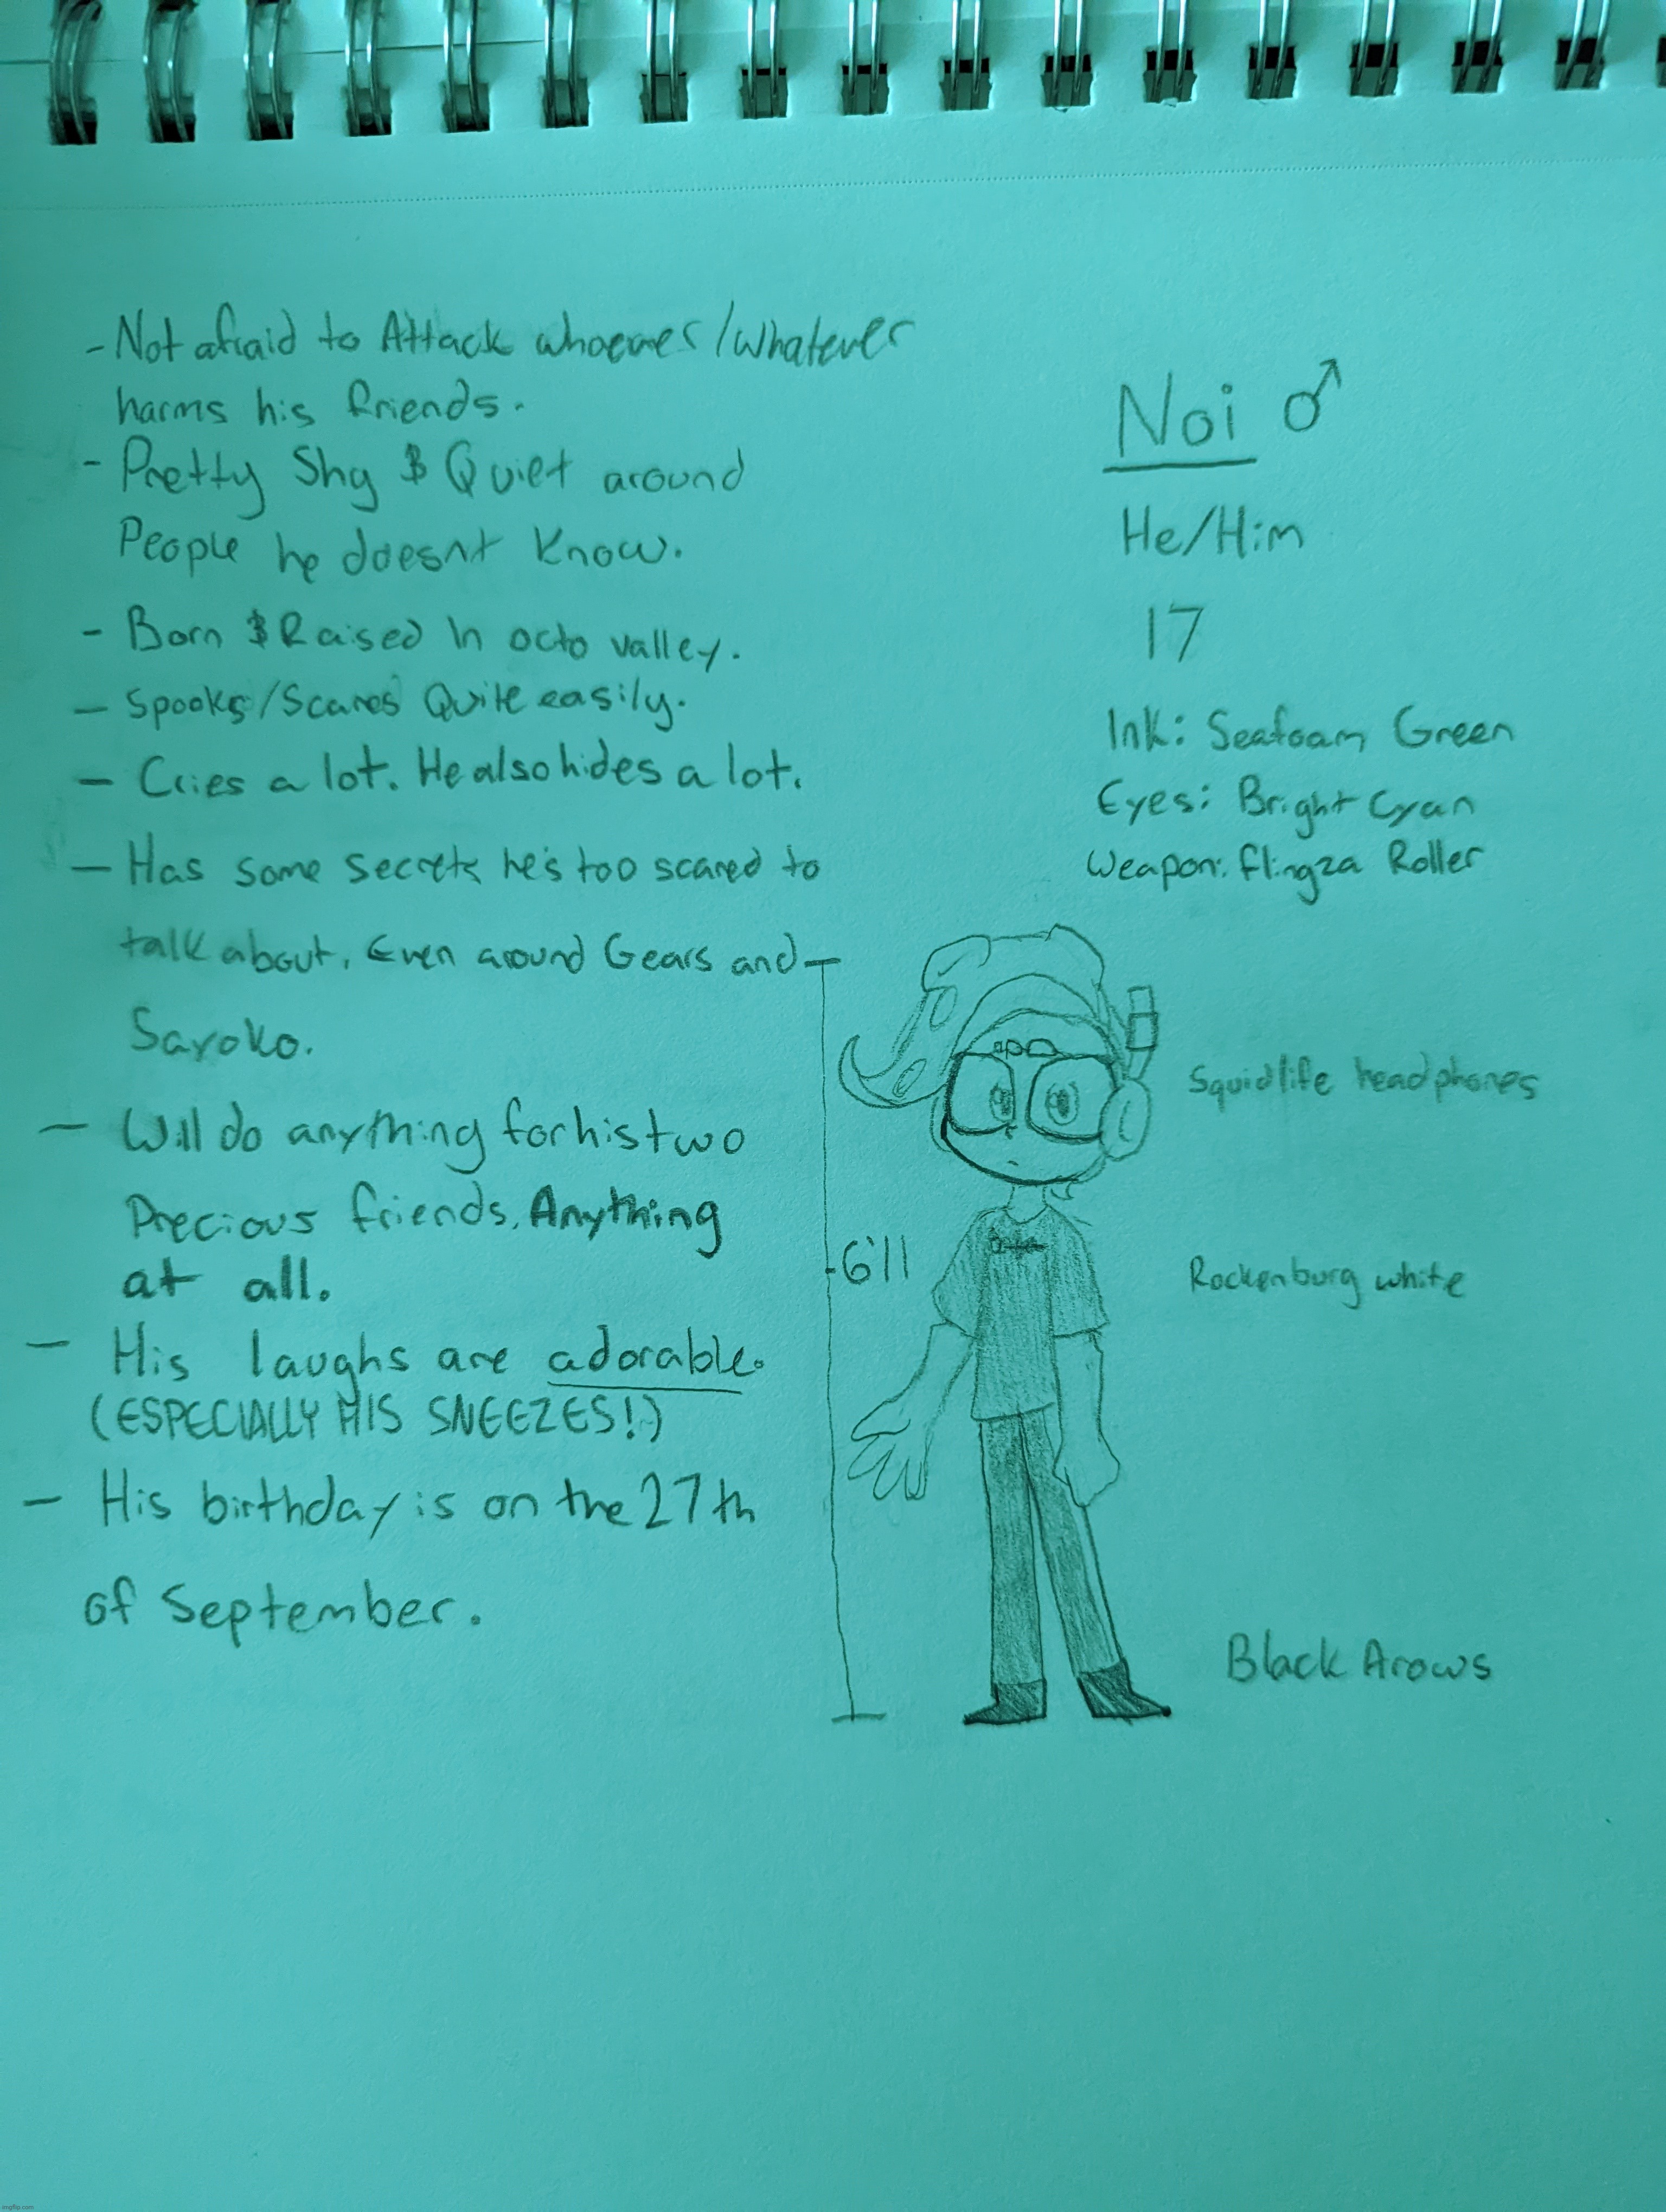 - Not afraid to Attack whoever/whatever
harms his friends.
- Pretty Shy & Quiet around
People he doesnt know.
- Born & Raised in octo valley.
- Spooks/Scares Quite easily.
- Cries a lot. He also hides a lot.
- Has some secrets he's too scared to
talk about, Even around Gears and
Sayoko.
- Will do anything for his two
Precious friends. Anything
at all.
- His laughs are adorable.
(ESPECIALLY HIS SNEEZES!)
- His birthday is on the 27th
of September.
Noi ♂
He/Him
17
Ink: Seafoam Green
Eyes: Bright Cyan
Weapon: Flingza Roller
Squidlife headphones
6'11
Rockenburg white
Black Arows
imgflip.com